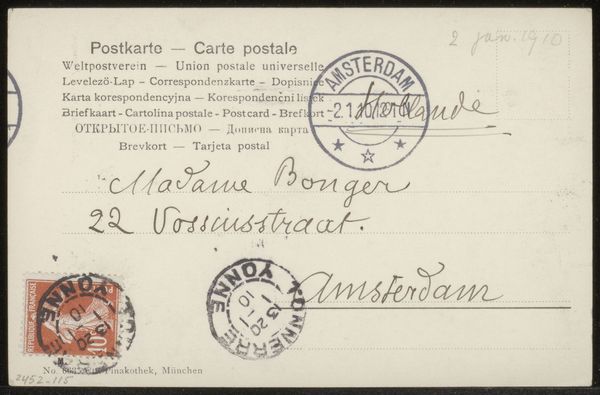 2 jan. 1910
Postkarte — Carte postale
Weltpostverein — Union postale universelle
Levelező-Lap – Correspondenzkarte – Dopisnice
Karta korespondencyjna – Korespondenční lístek
Briefkaart – Cartolina postale – Postcard – Brefkort
ОТКРЫТОЕ-ПИСЬМО — Дописна карта
Brevkort — Tarjeta postal
AMSTERDAM
Hollande
Madame Bonger
22 Vossiusstraat.
Amsterdam
TONNERRE
YONNE
13 20
10
REPUBLIQUE FRANÇAISE
10
YONNE
13 20
10
Pinakothek, München
2452-115